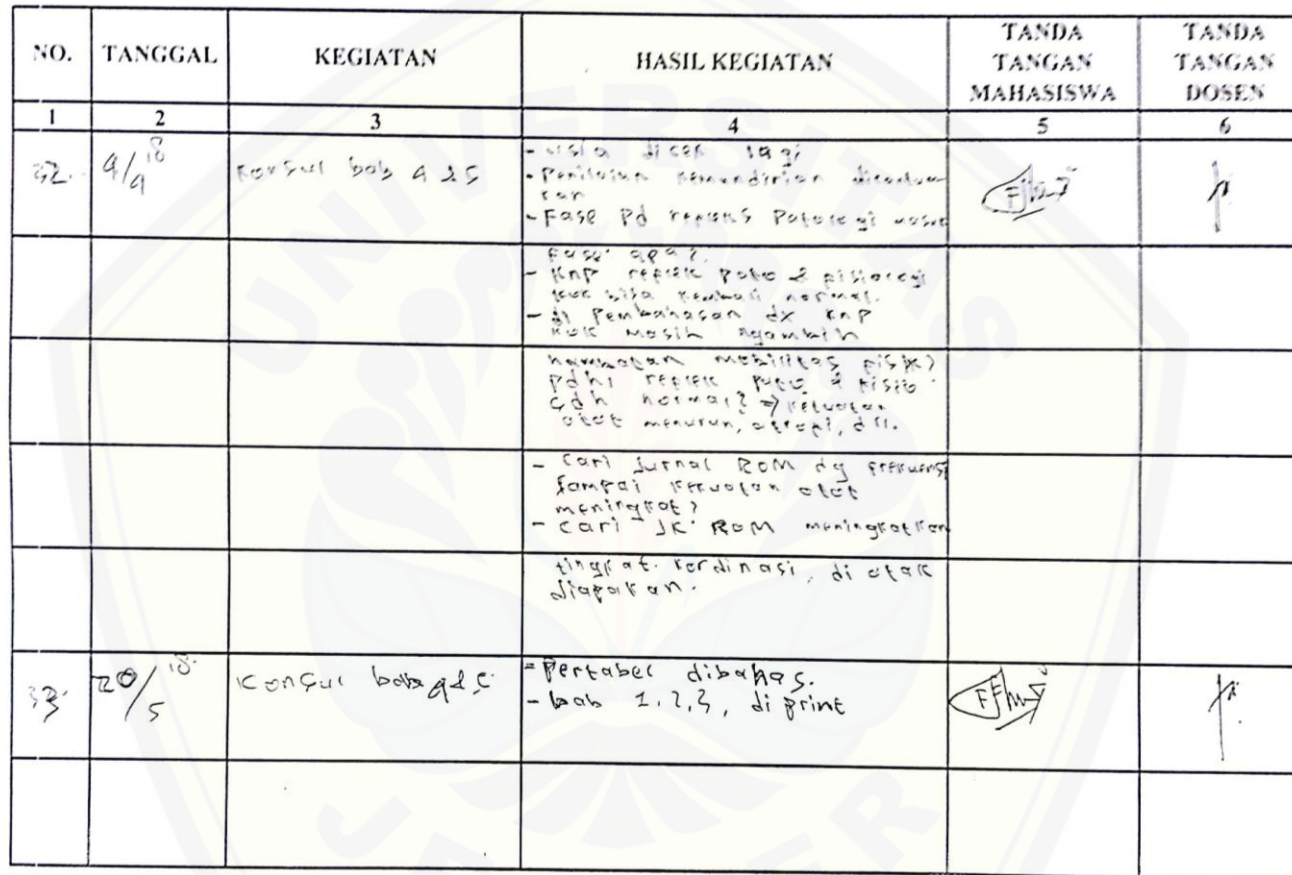 NO. TANGGAL KEGIATAN HASIL KEGIATAN TANDA TANGAN MAHASISWA TANDA TANGAN DOSEN
1 2 3 4 5 6
32. konsul bab 4 & 5
- usia dicek lagi
- Penilaian kemandirian dicantum
kan
- Fase pd refleks Patologi masuk
fase apa?
- Knp reflek pato & fisiologi
kok bisa kembali normal.
- di Pembahasan dx knp
kok masih ngambih
hambatan mobilitas fisik?
pdhl reflek pato & fisio
sdh normal? ⇒ kekuatan
otot menurun, atropi, dll.
- Cari Jurnal ROM dg frekuensi
sampai kekuatan otot
meningkat?
- Cari JK. ROM meningkatkan
tingkat kordinasi, di otak
diapakan.
33. 20/5 18 konsul bab 4 & 5
- Pertabel dibahas.
- bab 1,2,3, di print
UNIVERSITAS
JEMBER